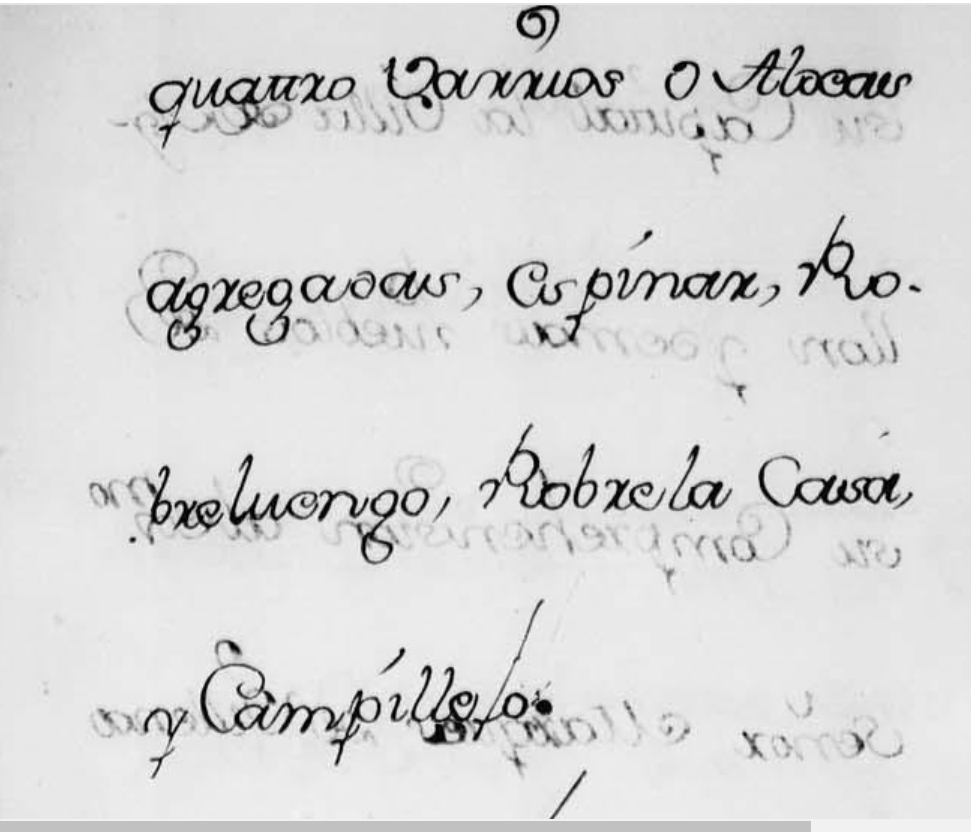 quattro Varrios o Aldeas
agregadas, Espinar, Ro-
breluengo, Robrela Casa,
y Campillejo.